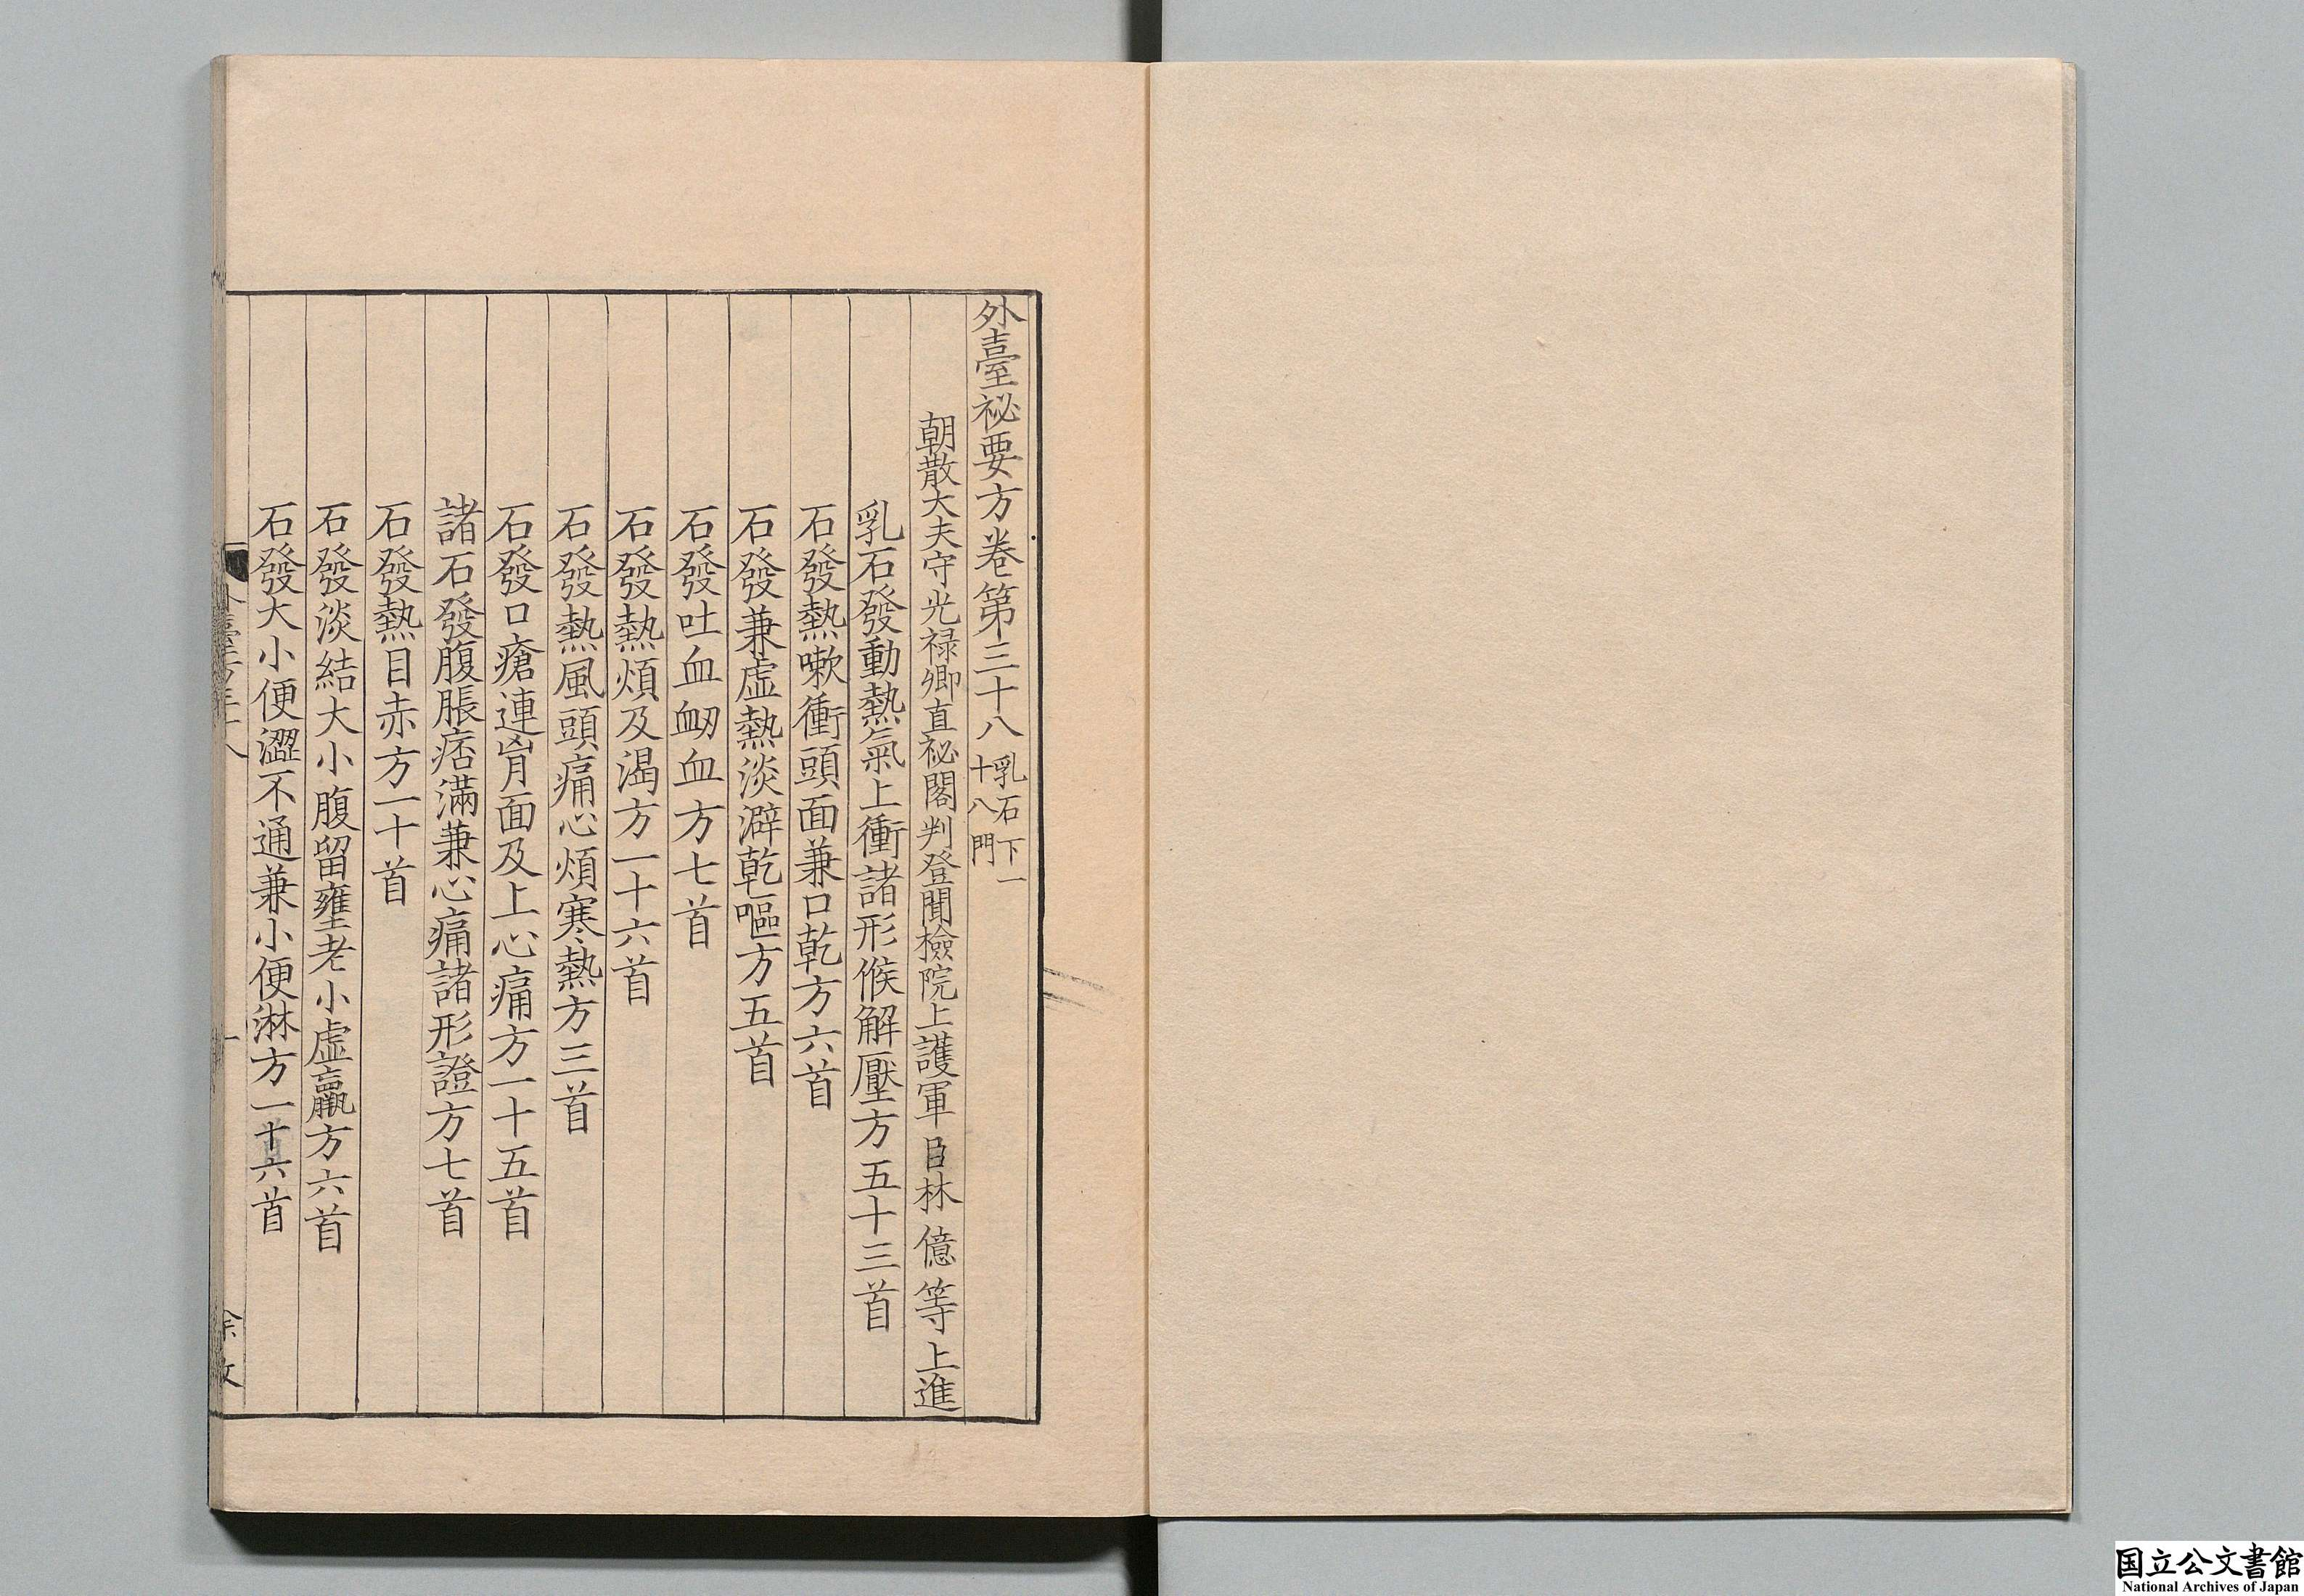 外臺祕要方卷第三十八 乳石下一十八門
朝散大夫守光禄卿直祕閣判登聞檢院上護軍臣林億等上進
乳石發動熱氣上衝諸形候解壓方五十三首
石發熱嗽衝頭面兼口乾方六首
石發兼虛熱淡澼乾嘔方五首
石發吐血衂血方七首
石發熱煩及渴方一十六首
石發熱風頭痛心煩寒熱方三首
石發口瘡連胷面及上心痛方一十五首
諸石發腹脹痞滿兼心痛諸形證方七首
石發熱目赤方一十首
石發淡結大小腹留壅老小虛羸方六首
石發大小便澀不通兼小便淋方一十六首
一
国立公文書館
National Archives of Japan